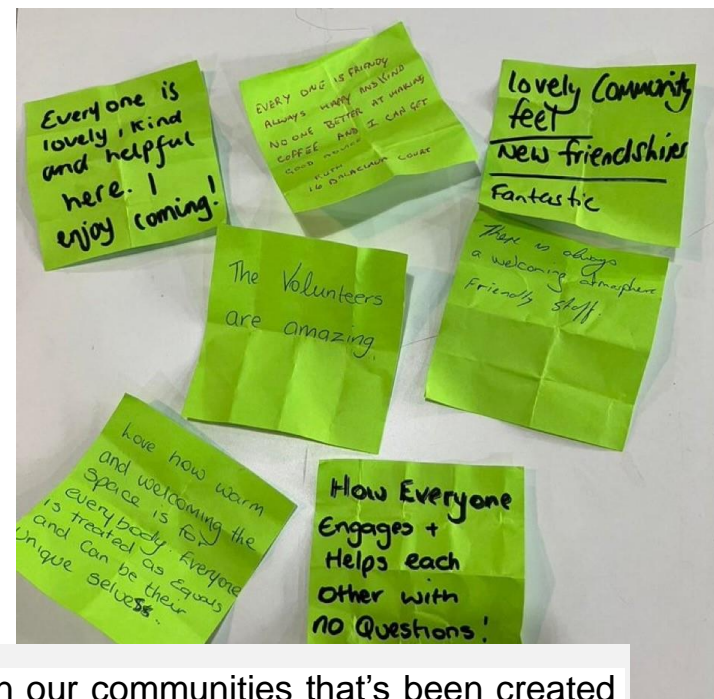 Everyone is
lovely, kind
and helpful
here. I
enjoy coming!
EVERY ONE IS FRIENDY
ALWAYS HAPPY AND KIND
NO ONE BETTER AT MAKING
COFFEE AND I CAN GET
GOOD
RUTH
16 BALACLAVA COURT
lovely Community
feel
New friendships
Fantastic
The Volunteers
are amazing.
There is always
a welcoming atmosphere.
Friendly staff.
Love how warm
and welcoming the
space is for
everybody. Everyone
is treated as Equals
and can be their
unique selvess.
How Everyone
Engages +
Helps each
other with
no Questions!
n our communities that's been created